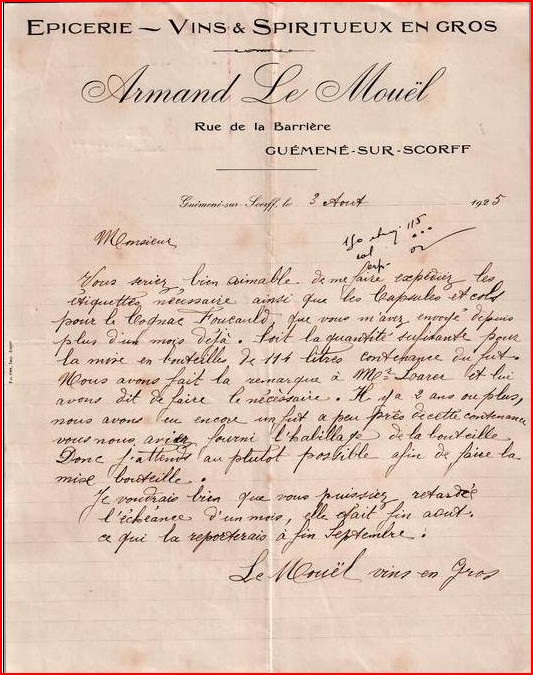 EPICERIE — VINS & SPIRITUEUX EN GROS
Armand Le Mouël
RUE DE LA BARRIÈRE
GUÉMENÉ-SUR-SCORFF
Guémené-sur Scorff, le 3 Aout 1925
150 115
col
Monsieur
Vous seriez bien aimable de me faire expediez les
étiquettes nécessaire ainsi que les Capsules et cols
pour le Cognac Foucauld que vous m'avez envoyé depuis
plus d'un mois dejà. Soit la quantité sufisante pour
la mise en bouteilles de 114 litres contenance du fut.
Nous avons fait la remarque à Mr Loarer et lui
avons dit de faire le nécessaire. Il y a 2 ans ou plus,
nous avons eu encore un fut a peu près de cette contenance
vous nous aviez fourni l'habillage de la bouteille
Donc j'attends au plutot possible afin de faire la
mise bouteille.
Je voudrais bien que vous puissiez retardée
l'échéance d'un mois, elle etait fin aout.
ce qui la reporterais à fin Septembre.
Le Mouël vins en Gros